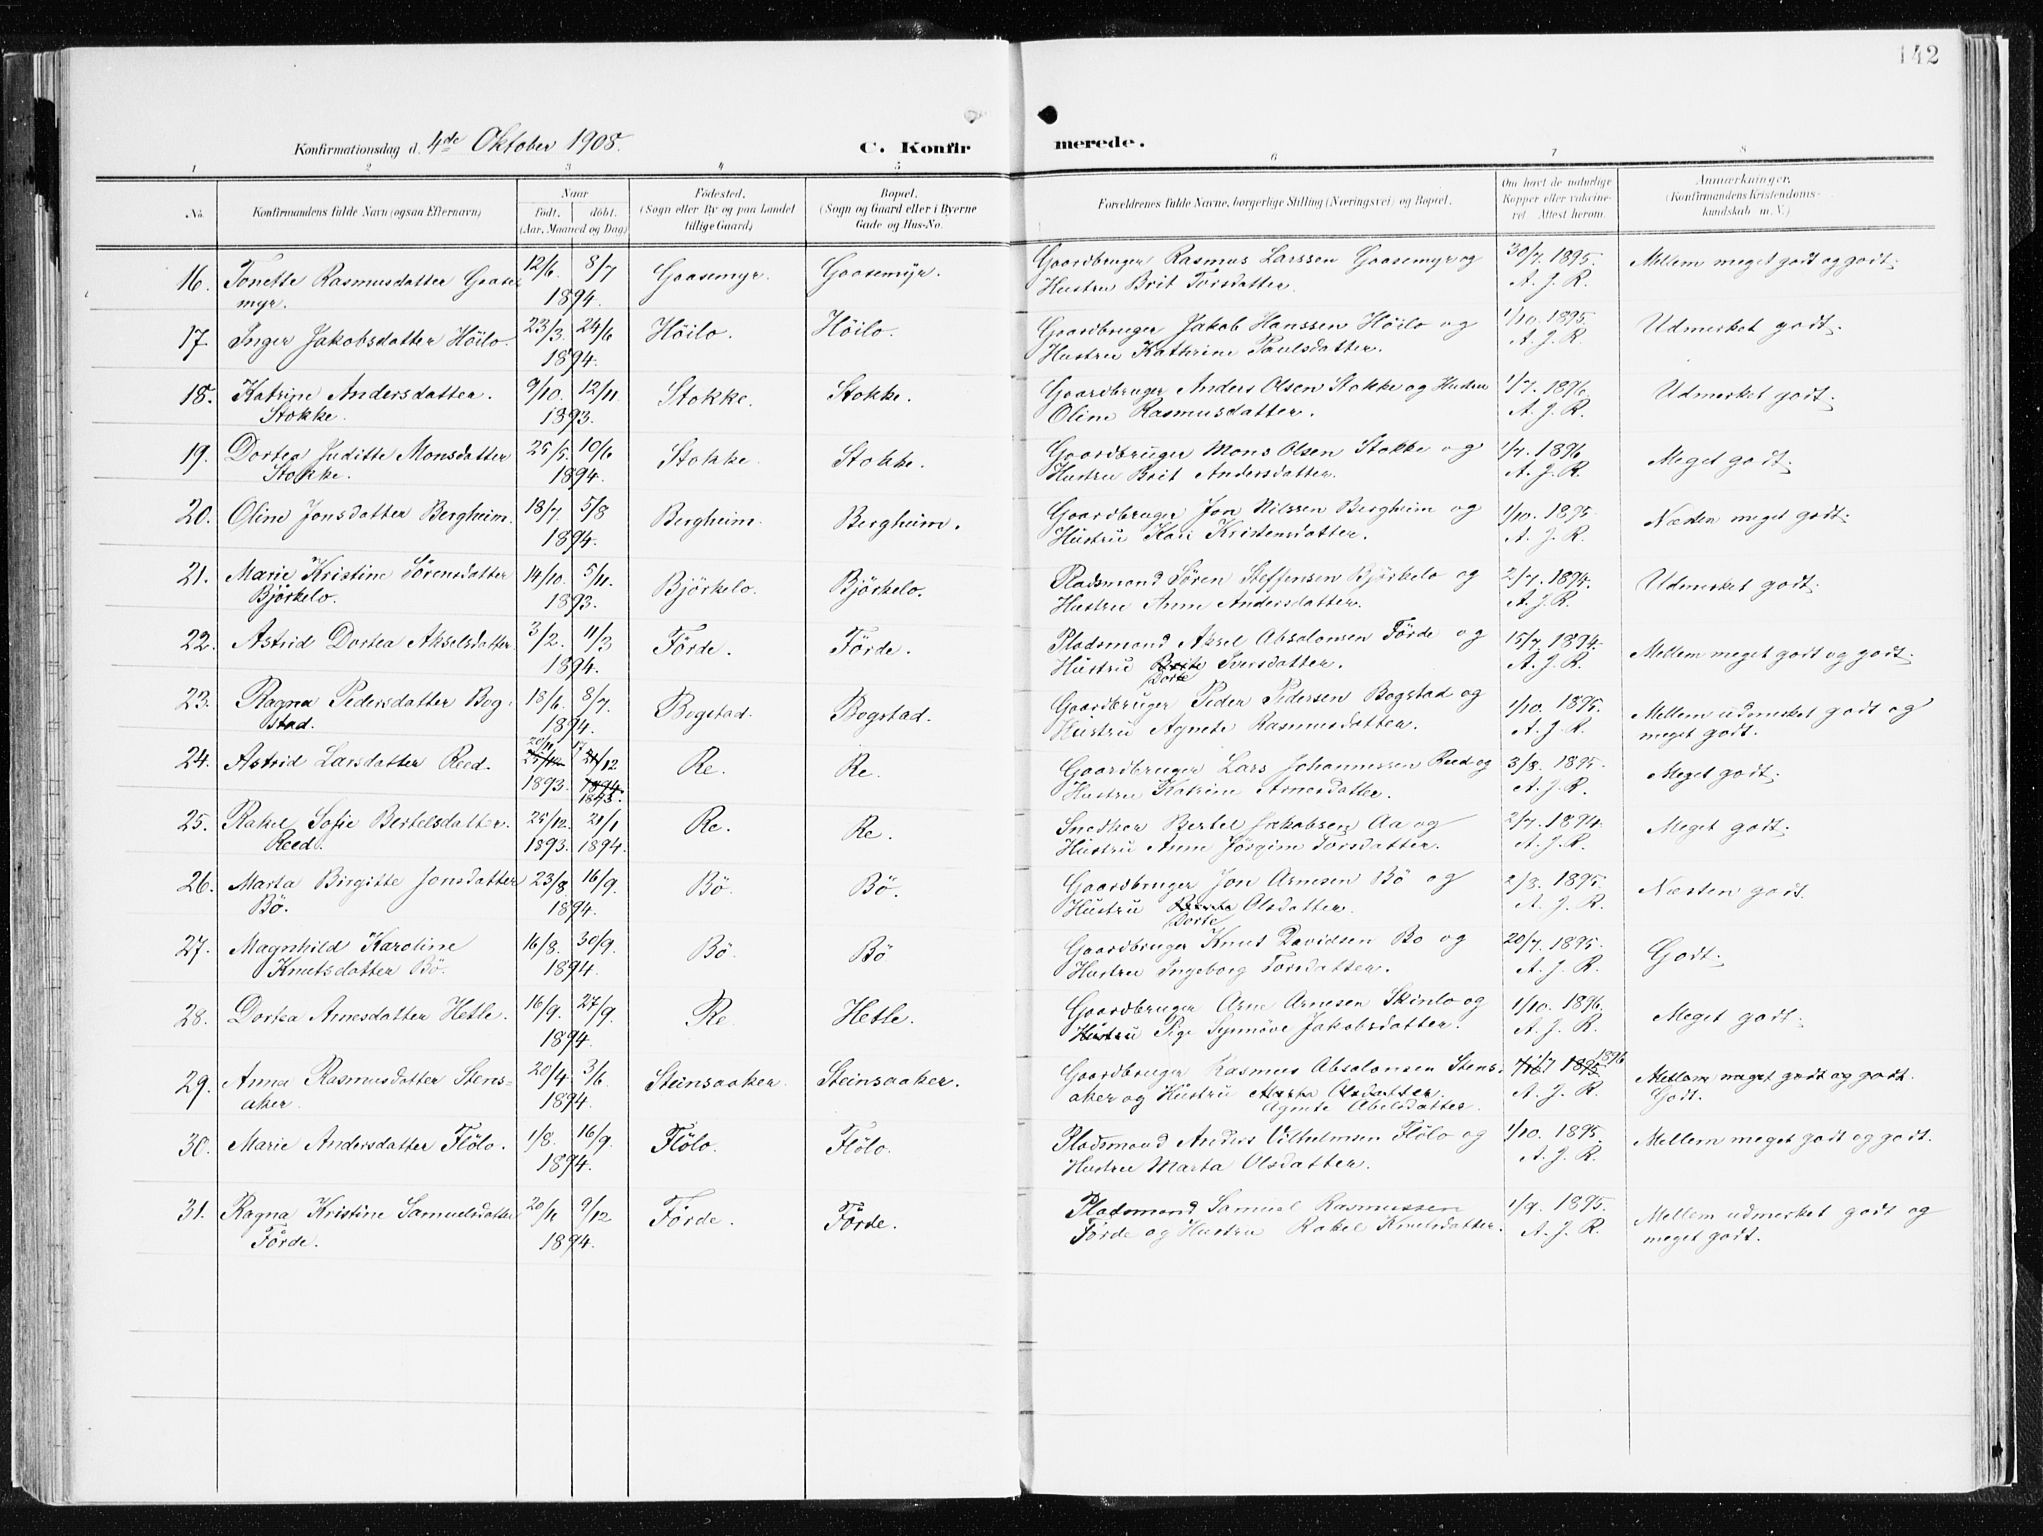 142
Konfirmationsdag d. 4de Oktober 1908.
C. Konfirmerede.
1 2 3 4 5 6 7 8
No. | Konfirmandens fulde Navn (ogsaa Efternavn) | Naar født, døbt. (Aar, Maaned og Dag) | Fødested. (Sogn eller By og paa Landet tillige Gaard) | Bopæl. (Sogn og Gaard eller i Byerne Gade og Hus-No. | Forældrenes fulde Navne, borgerlige Stilling (Næringsvei) og Bopæl. | Om havt de naturlige Kopper eller vakcineret. Attest herom. | Anmærkninger. (Konfirmandens Kristendomskundskab m. V.)
16. Tonette Rasmusdatter Gaase- 12/6. 8/7 Gaasemyr. Gaasemyr. Gaardbruger Rasmus Larssen Gaasemyr og 30/7. 1895. Mellem meget godt og godt.
myr. 1894. Hustru Brit Torsdatter. A. J. R.
17. Inger Jakobsdatter Höilo. 23/3. 24/6 Höilo. Höilo. Gaardbruger Jakob Hanssen Höilo og 1/10. 1895. Udmerket godt.
1894. Hustru Kathrine Paulsdatter. A. J. R.
18. Katrine Andersdatter. 9/10. 12/11. Stokke. Stokke. Gaardbruger Anders Olsen Stokke og Hustru 1/7. 1896 Udmerket godt.
Stokke. 1893. Oline Rasmusdatter. A. J. R.
19. Dortea Juditte Monsdatter 25/5. 10/6 Stokke. Stokke. Gaardbruger Mons Olsen Stokke og 1/7. 1896 Meget godt.
Stokke. 1894. Hustru Brit Andersdatter. A. J. R.
20. Oline Jonsdatter Bergheim. 18/7. 5/8 Bergheim. Bergheim. Gaardbruger Jon Nilssen Bergheim og 1/10. 1895. Næsten meget godt.
1894. Hustru Kari Kristensdatter. A. J. R.
21. Marie Kristine Sörensdatter 14/10. 5/11. Björkelo. Björkelo. Pladsmand Sören Steffensen Björkelo og 2/7. 1894. Udmerket godt.
Björkelo. 1893. Hustru Anne Andersdatter. A. J. R.
22. Astrid Dortea Akselsdatter 3/2. 11/3 Förde. Förde. Pladsmand Aksel Absalonsen Förde og 15/7. 1894. Mellem meget godt og godt.
1894. Hustru Dorte Iversdatter. A. J. R.
23. Ragna Pedersdatter Bog- 18/6. 8/7. Bogstad. Bogstad. Gaardbruger Peder Pedersen Bogstad og 1/10. 1895. Mellem udmerket godt og
stad. 1894. Hustru Agnete Rasmusdatter. A. J. R. meget godt.
24. Astrid Larsdatter Reed. 20/11 17/12 Re. Re. Gaardbruger Lars Johannessen Reed og 3/8. 1895. Meget godt.
1893. 1894. 1893. Hustru Katrine Arnesdatter. A. J. R.
25. Rakel Sofie Bertelsdatter. 25/12. 21/1 Re. Re. Snedker Bertel Jakobsen Aa og 2/7. 1894. Meget godt.
Reed. 1893. 1894. Hustru Anne Jörgine Torsdatter. A. J. R.
26. Marta Birgitte Jonsdatter 23/8. 16/9. Bö. Bö. Gaardbruger Jon Arnesen Bö og 2/8. 1895. Næsten godt.
Bö. 1894. Hustru Dorte Olsdatter. A. J. R.
27. Magnhild Karoline 16/8. 30/9. Bö. Bö Gaardbruger Knut Davidsen Bö og 20/7. 1895. Godt.
Knutsdatter Bö. 1894. Hustru Ingeborg Torsdatter. A. J. R.
28. Dortea Arnesdatter Hetle. 16/9. 27/9. Re Hetle. Gaardbruger Arne Arnesen Skinlo og 1/10. 1896. Meget godt.
1894. Hustru Pige Synnöve Jakobsdatter. A. J. R.
29. Anna Rasmusdatter Stens- 20/4. 3/6. Steinsaaker. Steinsaaker. Gaardbruger Rasmus Absalonsen Stens- 1/7 1895 1896 Mellem meget godt og godt.
aker. 1894. aker og Hustru Marta Olsdatter. Agnete Abelsdatter. A. J. R. Godt.
30. Marie Andersdatter Flölo. 1/8. 16/9. Flölo. Flölo. Pladsmand Anders Vilhelmsen Flölo og 1/10. 1895. Mellem meget godt og godt.
1894. Hustru Marta Olsdatter. A. J. R.
31. Ragna Kristine Samuelsdatter 20/11 9/12 Förde. Förde. Pladsmand Samuel Rasmussen 1/9. 1895. Mellem udmerket godt og
Förde. 1894. Förde og Hustru Rakel Knutsdatter. A. J. R. meget godt.